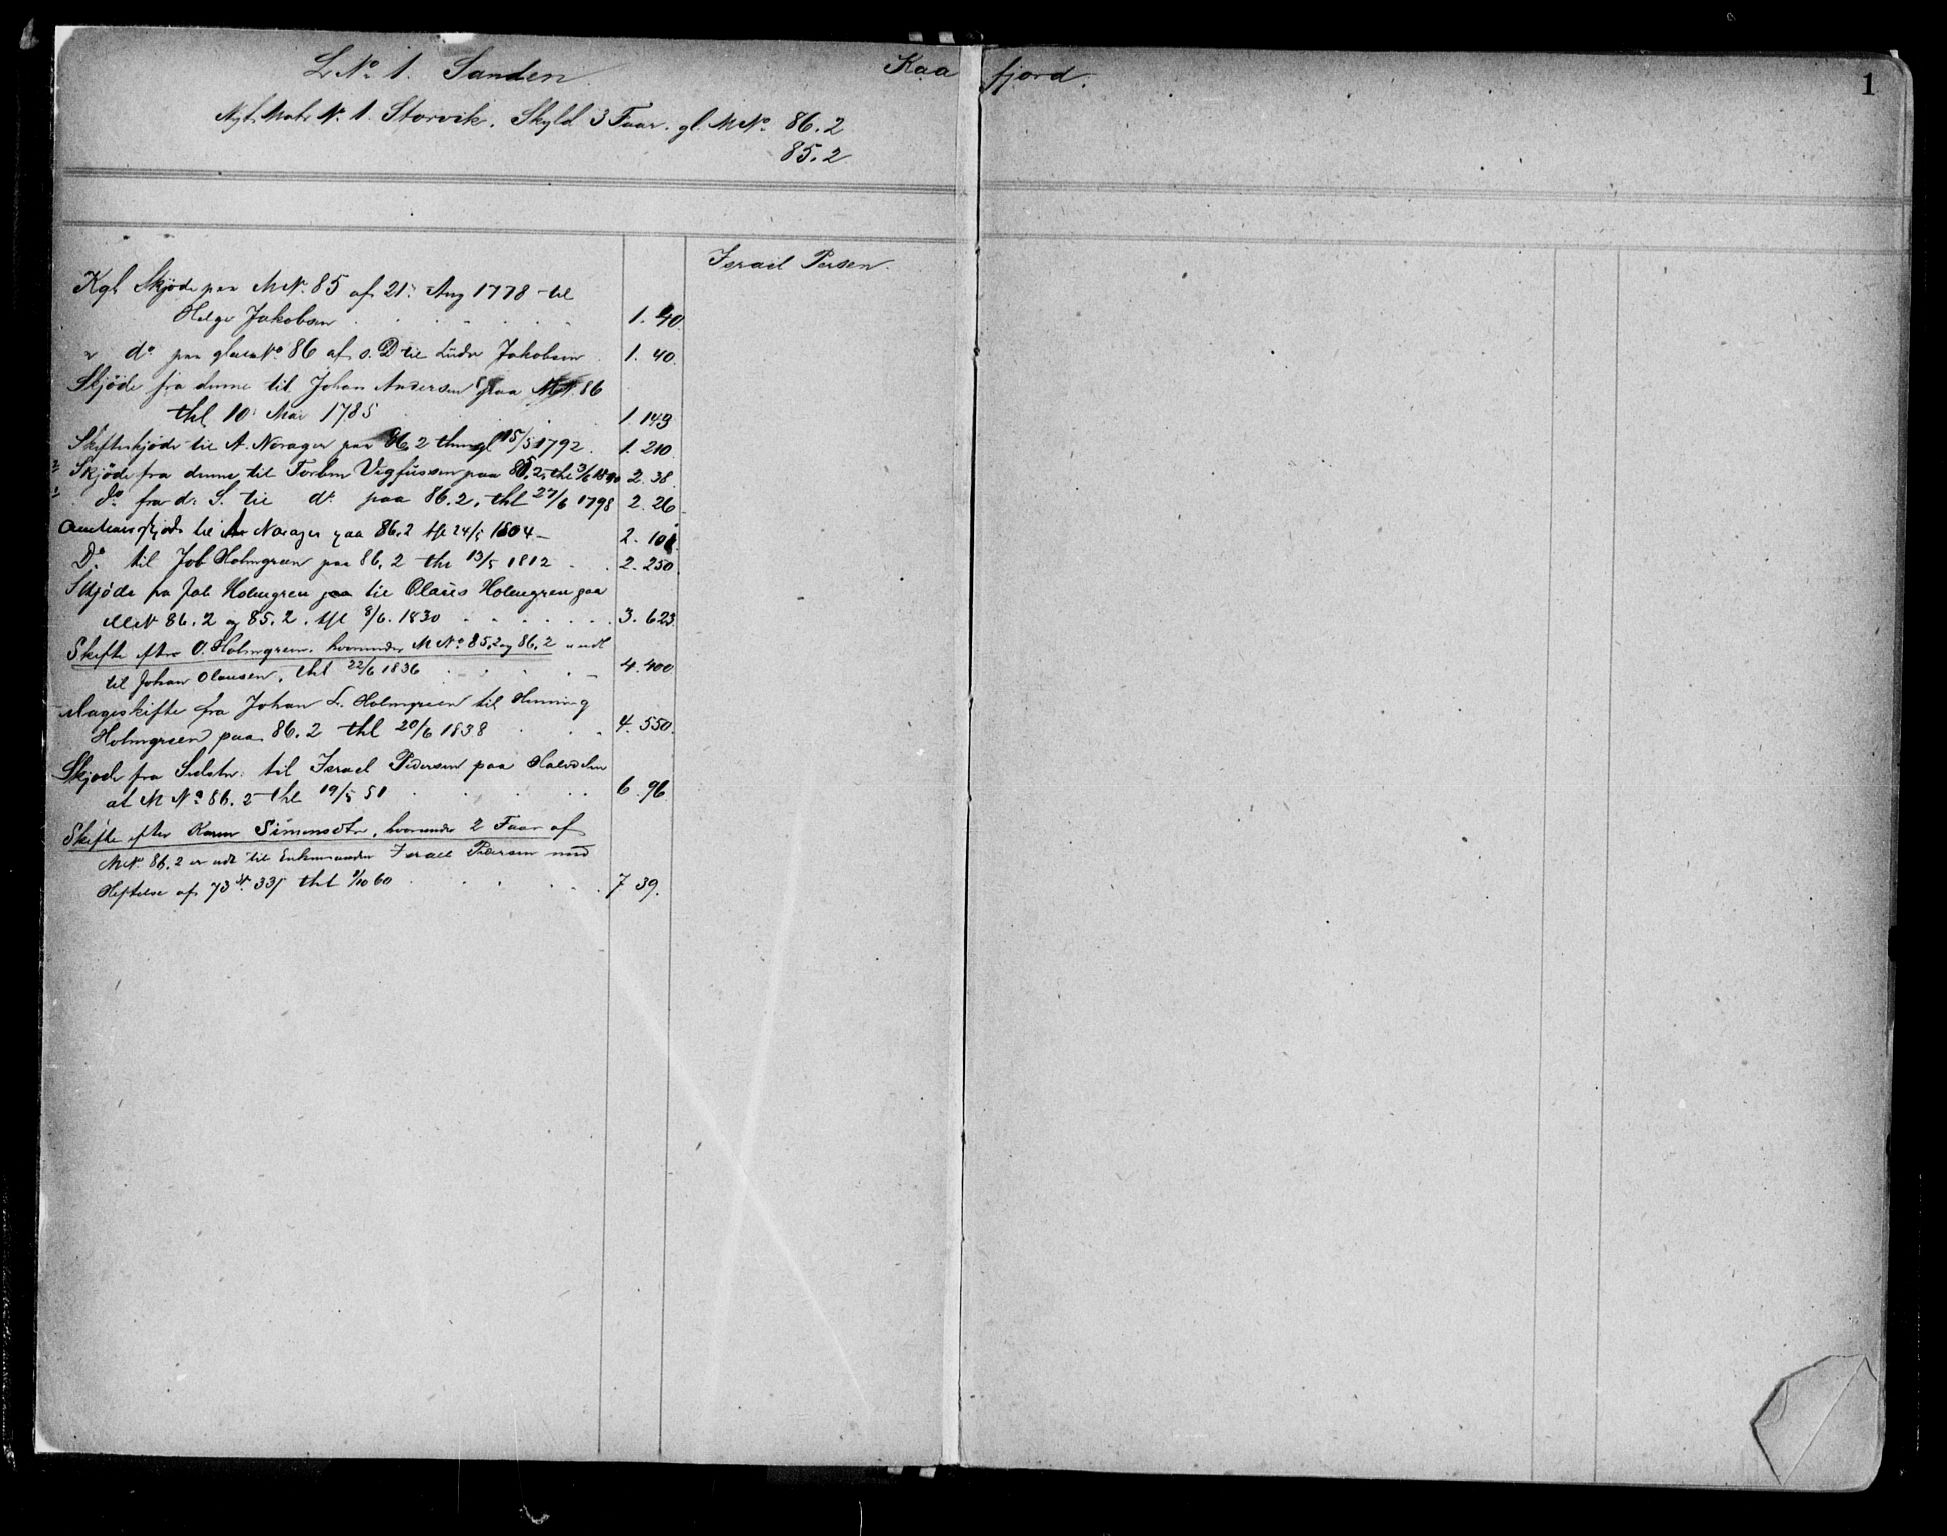 L No 1. Sanden. Kaa fjord. 1
Nyt Matr N. 1. Storvik. Skyld 3 Faar. gl. M No. 86.2
85.2
Israel Persen.
Kgl Skjøde paa M N. 85 af 21. Aug 1778 til
Helge Jakobsen 1. 40.
" do paa M No. 86 af s. D til Jakobsen 1. 40.
Skjøde fra denne til Johan Andersen paa M N. 86
thl 10. Mai 1785 1. 149
Skifteskjøde til A. Norager paa 86.2 thingl 15/5 1792. 1. 210.
2 Skjøde fra denne til Torben Vigfussen paa 85.2, thl 2. 38.
1 Do. fra d. S. til do. paa 86.2, thl 27/6 1798 2. 26
Auctionsskjøde til A Norager paa 86.2 thl 24/5 1804 - 2. 101.
Do. til Job Holmgreen paa 86.2 thl 13/5 1812 2. 250.
Skjøde fra Job Holmgren paa til Olaus Holmgren paa
M N 86.2 og 85.2. thl 8/6. 1830 3. 623.
Skifte efter O. Holmgreen. hvorunder M No. 85.2 og 86.2 udl
til Johan Olausen, thl 22/6 1836 4. 400.
Mageskifte fra Johan L. Holmgreen til Henning
Holmgreen paa 86.2 thl 20/6 1838 4. 550.
Skjøde fra Sidstn. til Israel Pedersen paa Halvdelen
af M No. 86.2 thl 19/5 51 6. 96.
Skifte efter Karen Simonsdtr, hvorunder 2 Faar af
M N. 86.2 er udl til Enkemanden Israel Pedersen med
Heftelse af 73 33 thl 9/10 60 7 39.